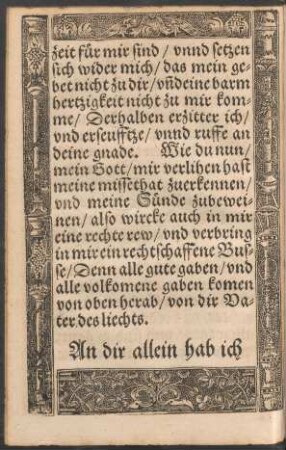 zeit für mir sind / vnnd setzen
sich wider mich / das mein ge-
bet nicht zu dir / vñ deine barm
hertzigkeit nicht zu mir kom-
me / Derhalben erzitter ich /
vnd erseufftze / vnnd ruffe an
deine gnade. Wie du nun /
mein Gott / mir verlihen hast
meine missethat zuerkennen /
vnd meine Sünde zubewei-
nen / also wircke auch in mir
eine rechte rew / vnd verbring
in mir ein rechtschaffene Bus-
se / Denn alle gute gaben / vnd
alle volkomene gaben komen
von oben herab / von dir Va-
ter des liechts.
An dir allein hab ich